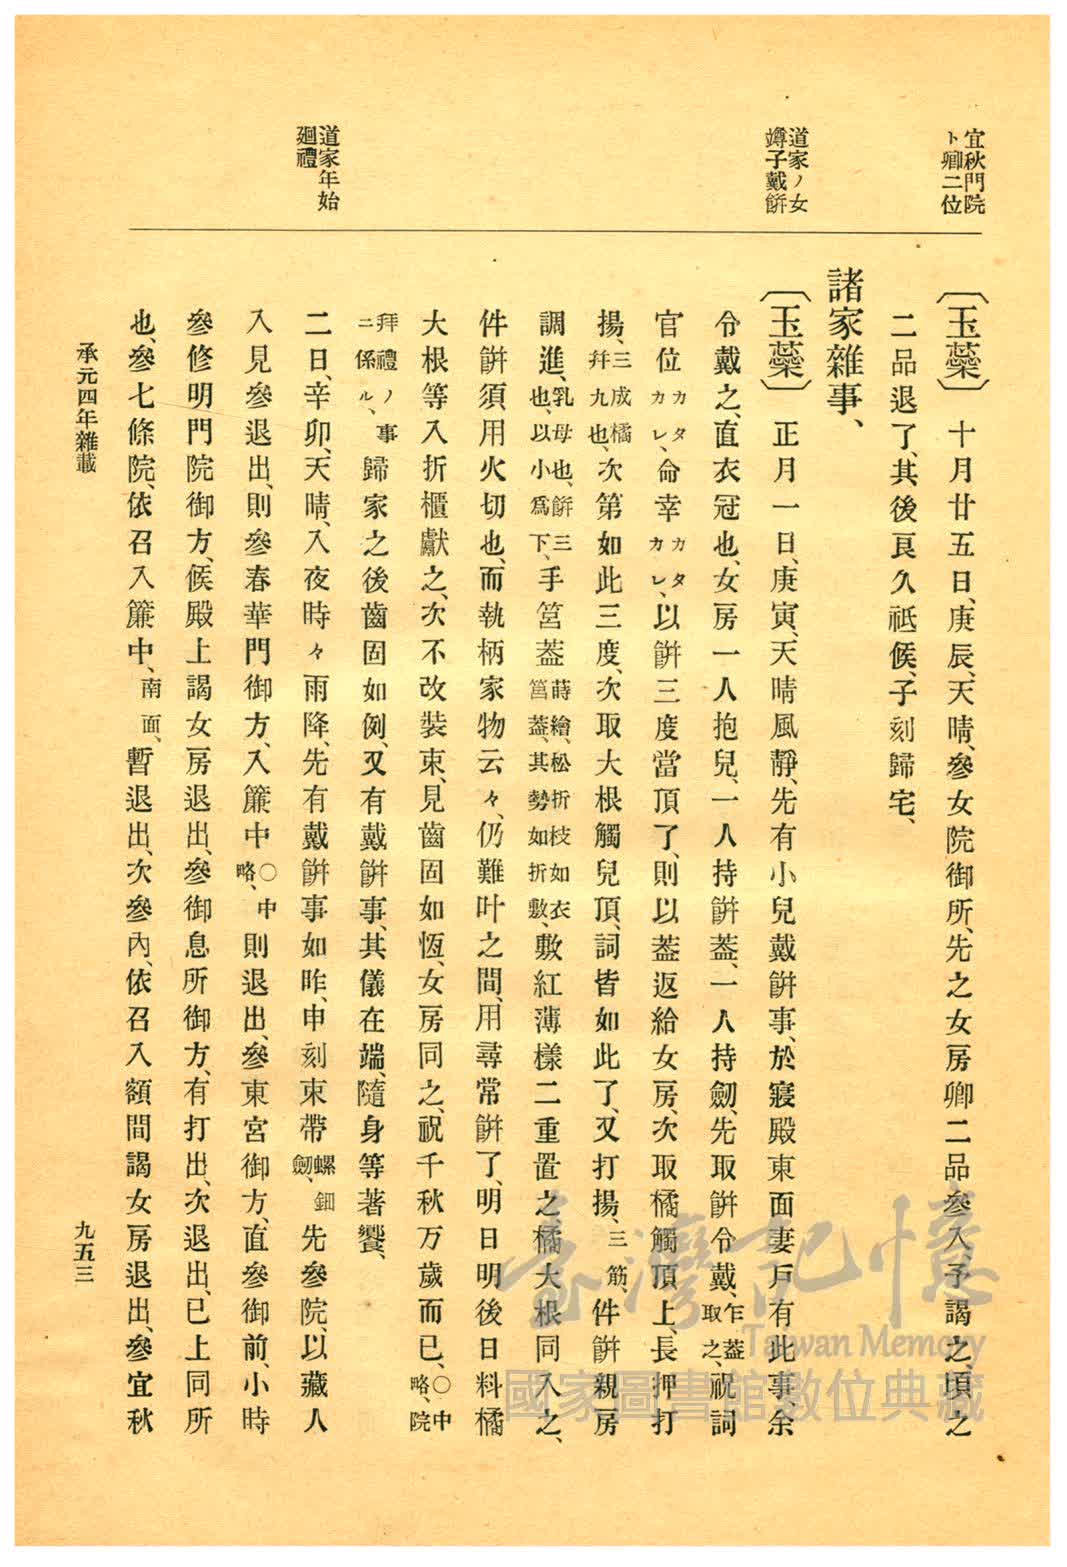 宜秋門院
ト卿二位
道家ノ女
竴子戴餠
道家年始
廻禮
〔玉蘂〕 十月廿五日、庚辰、天晴、參女院御所、先之女房卿二品參入、予謁之、頃之
二品退了、其後良久祗候、子刻歸宅、
諸家雜事、
〔玉蘂〕 正月一日、庚寅、天晴風靜、先有小兒戴餠事、於寢殿東面妻戶有此事、余
令戴之、直衣冠也、女房一人抱兒、一人持餠葢、一人持劒、先取餠令戴、乍葢取之、祝詞
官位カタカレ、命幸カタカレ、以餠三度當頂了、則以葢返給女房、次取橘觸頂上、長押打
揚、三成橘幷九也、次第如此三度、次取大根觸兒頂、詞皆如此了、又打揚、三筋、件餠親房
調進、乳母也、餠三也、以小爲下、手筥葢蒔繪、松折枝如衣筥葢、其勢如折敷、敷紅薄樣二重置之、橘大根同入之、
件餠須用火切也、而執柄家物云々、仍難叶之間、用尋常餠了、明日明後日料橘
大根等入折櫃獻之、次不改裝束、見齒固如恆、女房同之、祝千秋万歲而已、○中略、院
拜禮ノ事ニ係ル、歸家之後齒固如例、又有戴餠事、其儀在端、隨身等著饗、
二日、辛卯、天晴、入夜時々雨降、先有戴餠事如昨、申刻束帶螺鈿劒、先參院、以藏人
入見參退出、則參春華門御方、入簾中○中略、則退出、參東宮御方、直參御前、小時
參修明門院御方、候殿上謁女房退出、參御息所御方、有打出、次退出、已上同所
也、參七條院、依召入簾中、南面、暫退出、次參內、依召入額間謁女房退出、參宜秋
承元四年雜載
九五三
臺灣記憶
Taiwan Memory
國家圖書館數位典藏